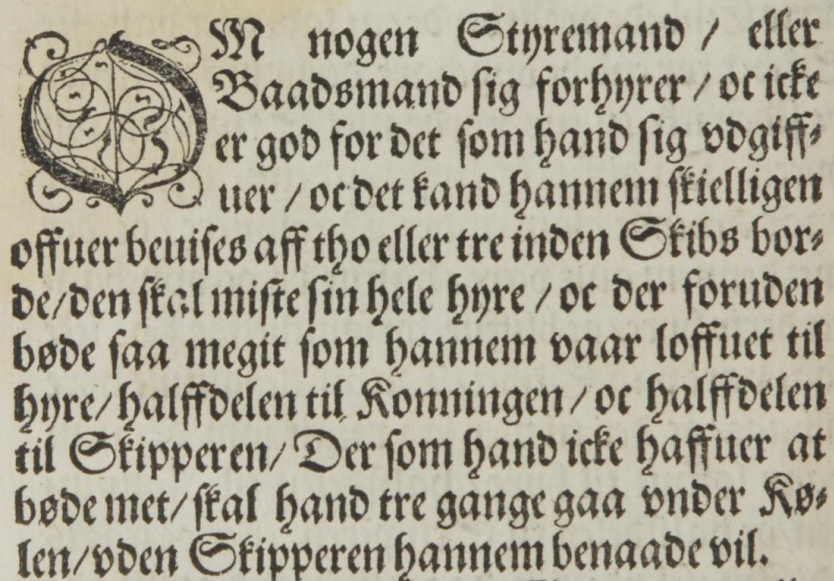 OM nogen Styremand / eller
Baadsmand sig forhyrer / oc icke
er god for det som hand sig vdgiff⸗
uer / oc det kand hannem skielligen
offuer beuises aff tho eller tre inden Skibs bor⸗
de/den skal miste sin hele hyre / oc der foruden
bøde saa megit som hannem vaar loffuet til
hyre/halffdelen til Konningen/oc halffdelen
til Skipperen/Der som hand icke haffuer at
bøde met/skal hand tre gange gaa vnder Kø⸗
len/vden Skipperen hannem benaade vil.